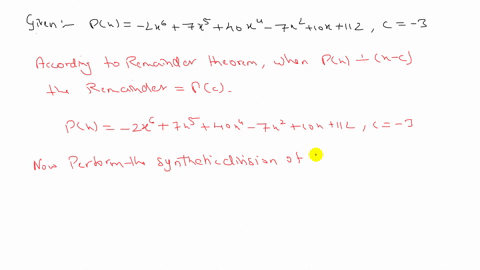 Given:- P(x) = -2x⁶ + 7x⁵ + 40x⁴ - 7x² + 10x + 112 , c = -3
According to Remainder theorem, when P(x) ÷ (x-c)
the Remainder = P(c).
P(x) = -2x⁶ + 7x⁵ + 40x⁴ - 7x² + 10x + 112 , c = -3
Now Perform the synthetic division of